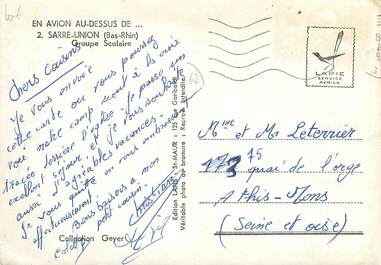 EN AVION AU-DESSUS DE ...
2. SARRE-UNION (Bas-Rhin)
Groupe Scolaire
Chers cousins
Je vous envoie
cette carte ou vous pouvez
voir notre camp scout à la croix
tracée derrière l'église. Je passe un
excellent séjour et je vous souhaite
aussi d'agréables vacances.
Je vous quitte en vous embrassant
affectueusement.
Bons baisers a mon
petit cousin.
Christian
Collection Geyer
Edition LAPIE ST-MAUR : 125 rue Garibaldi
Véritable photo au bromure - Reproo. interdite
LAPIE
SERVICE
AERIEN
Mme et Mr Leterrier
173 75
quai de l'orge
Athis-Mons
(Seine et oise)